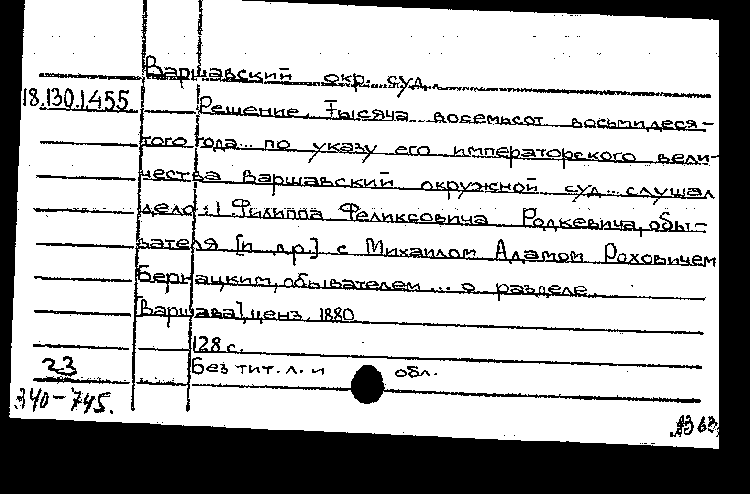 Варшавский окр. суд.
18.130.1455
Решение. Тысяча восемьсот восьмидеся-
того года... по указу его императорского вели-
чества Варшавский окружной суд... слушал
дело: 1 Филиппа Феликсовича Родкевича, обы-
вателя [и др.] с Михаилом Адамом Роховичем
Бернацким, обывателем... о разделе.
[Варшава], ценз. 1880.
128 с.
Без тит. л. и обл.
23
340-745.